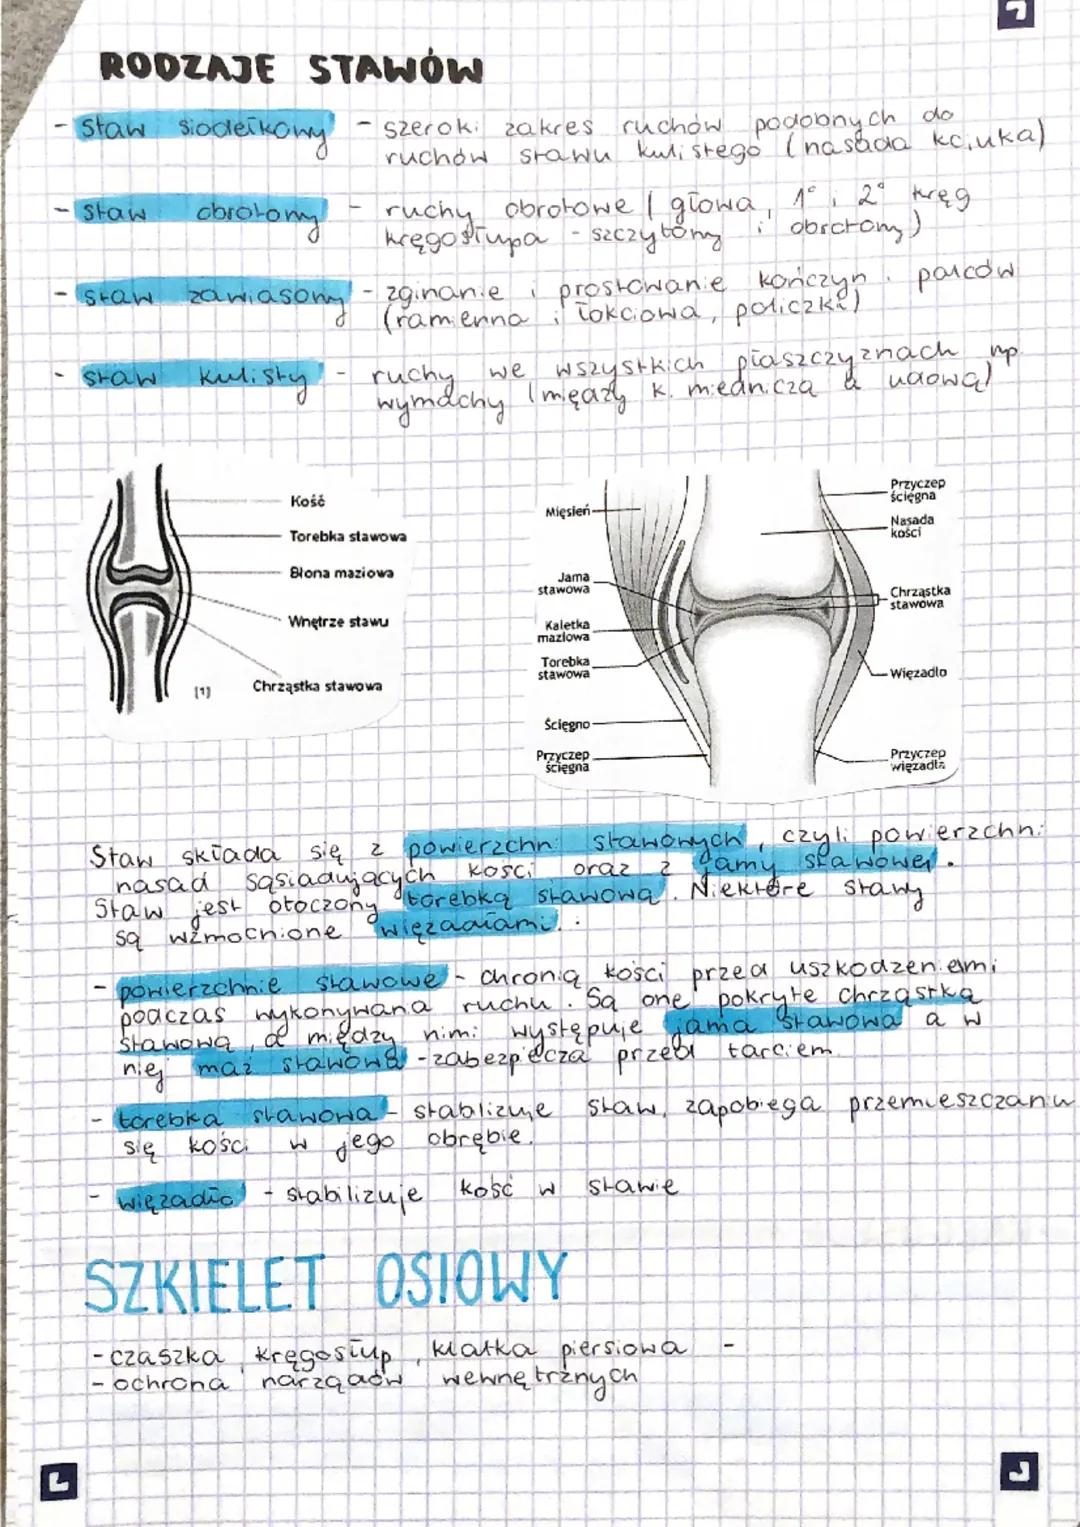 RODZAJE STAWÓW
- staw siodełkowy - szeroki zakres ruchów podobnych do
ruchów stawu kulistego (nasada kciuka)
- staw obrotowy - ruchy obrotowe (głowa, 1° i 2° kręg
kręgosłupa - szczytowy i obrotowy)
- staw zawiasowy - zginanie i prostowanie kończyn i palców
(ramienna i łokciowa, policzka)
- staw kulisty - ruchy we wszystkich płaszczyznach np.
wymachy (między k. miedniczą a udową)
Kość
Torebka stawowa
Błona maziowa
Wnętrze stawu
Chrząstka stawowa
[1]
Mięsień
Jama
stawowa
Kaletka
maziowa
Torebka
stawowa
Ścięgno
Przyczep
ścięgna
Przyczep
ścięgna
Nasada
kości
Chrząstka
stawowa
Więzadło
Przyczep
więzadła
Staw składa się z powierzchni stawowych, czyli powierzchni
nasad sąsiadujących kości oraz z jamy stawowej.
Staw jest otoczony torebką stawową. Niektóre stawy
są wzmocnione więzadłami. :
- powierzchnie stawowe - chronią kości przed uszkodzeniami
podczas wykonywana ruchu. Są one pokryte chrząstką
stawową, a między nimi występuje jama stawowa a w
niej maź stawowa - zabezpiecza przed tarciem.
- torebka stawowa - stablizuje staw, zapobiega przemieszczaniu
się kości w jego obrębie.
- więzadło - stabilizuje kość w stawie
SZKIELET OSIOWY
- czaszka, kręgosłup, klatka piersiowa -
- ochrona narządów wewnętrznych